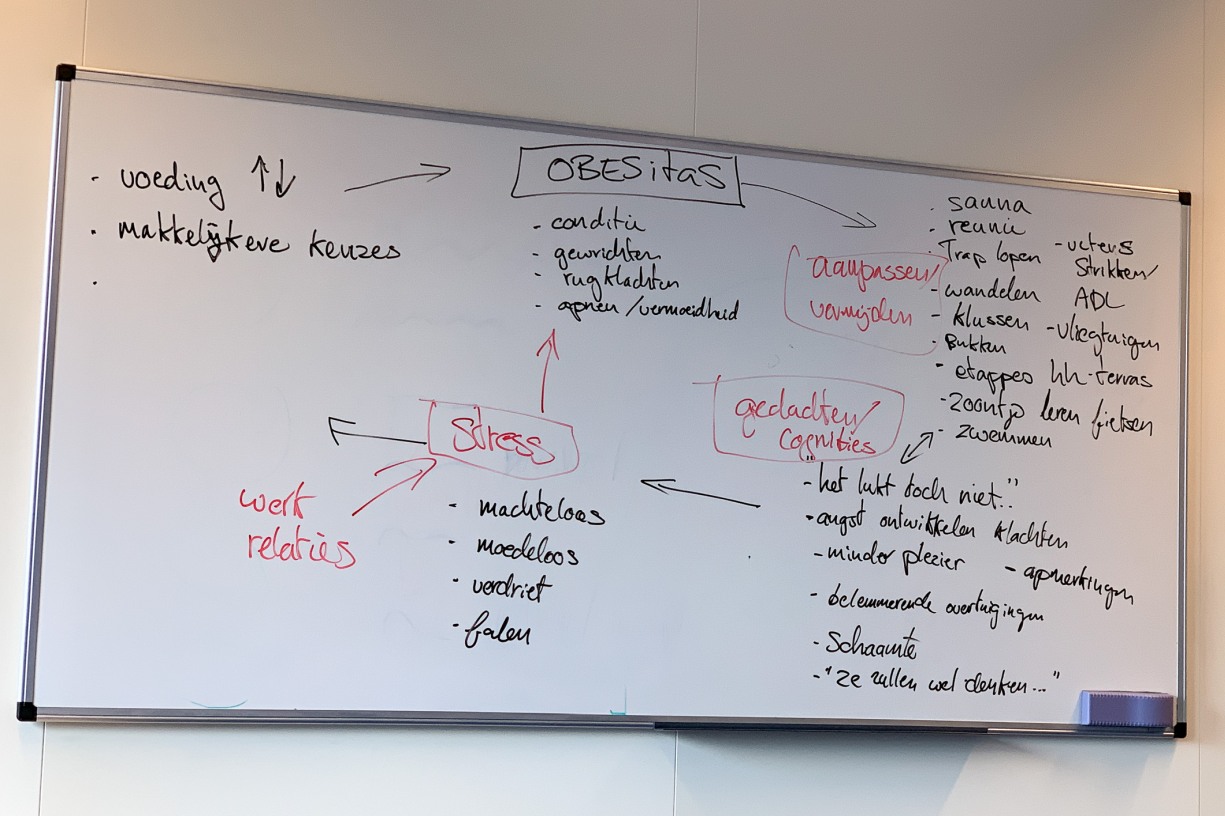 - voeding ↑↓
- makkelijkere keuzes
-
OBESitaS
- conditie
- gewrichten
- rugklachten
- apneu /vermoeidheid
aanpassen/
vermijden
- sauna
- reunie
- Trap lopen
- wandelen
- klussen
- Bukken
- etappes hh-terras
- zoontje leren fietsen
- zwemmen
- veters
strikken/
ADL
- vliegtuigen
gedachten/
cognities
- "het lukt toch niet.."
- angst ontwikkelen klachten
- minder plezier
- opmerkingen
- belemmerende overtuigingen
- Schaamte
- "ze zullen wel denken..."
Stress
- machteloos
- moedeloos
- verdriet
- falen
werk
relaties